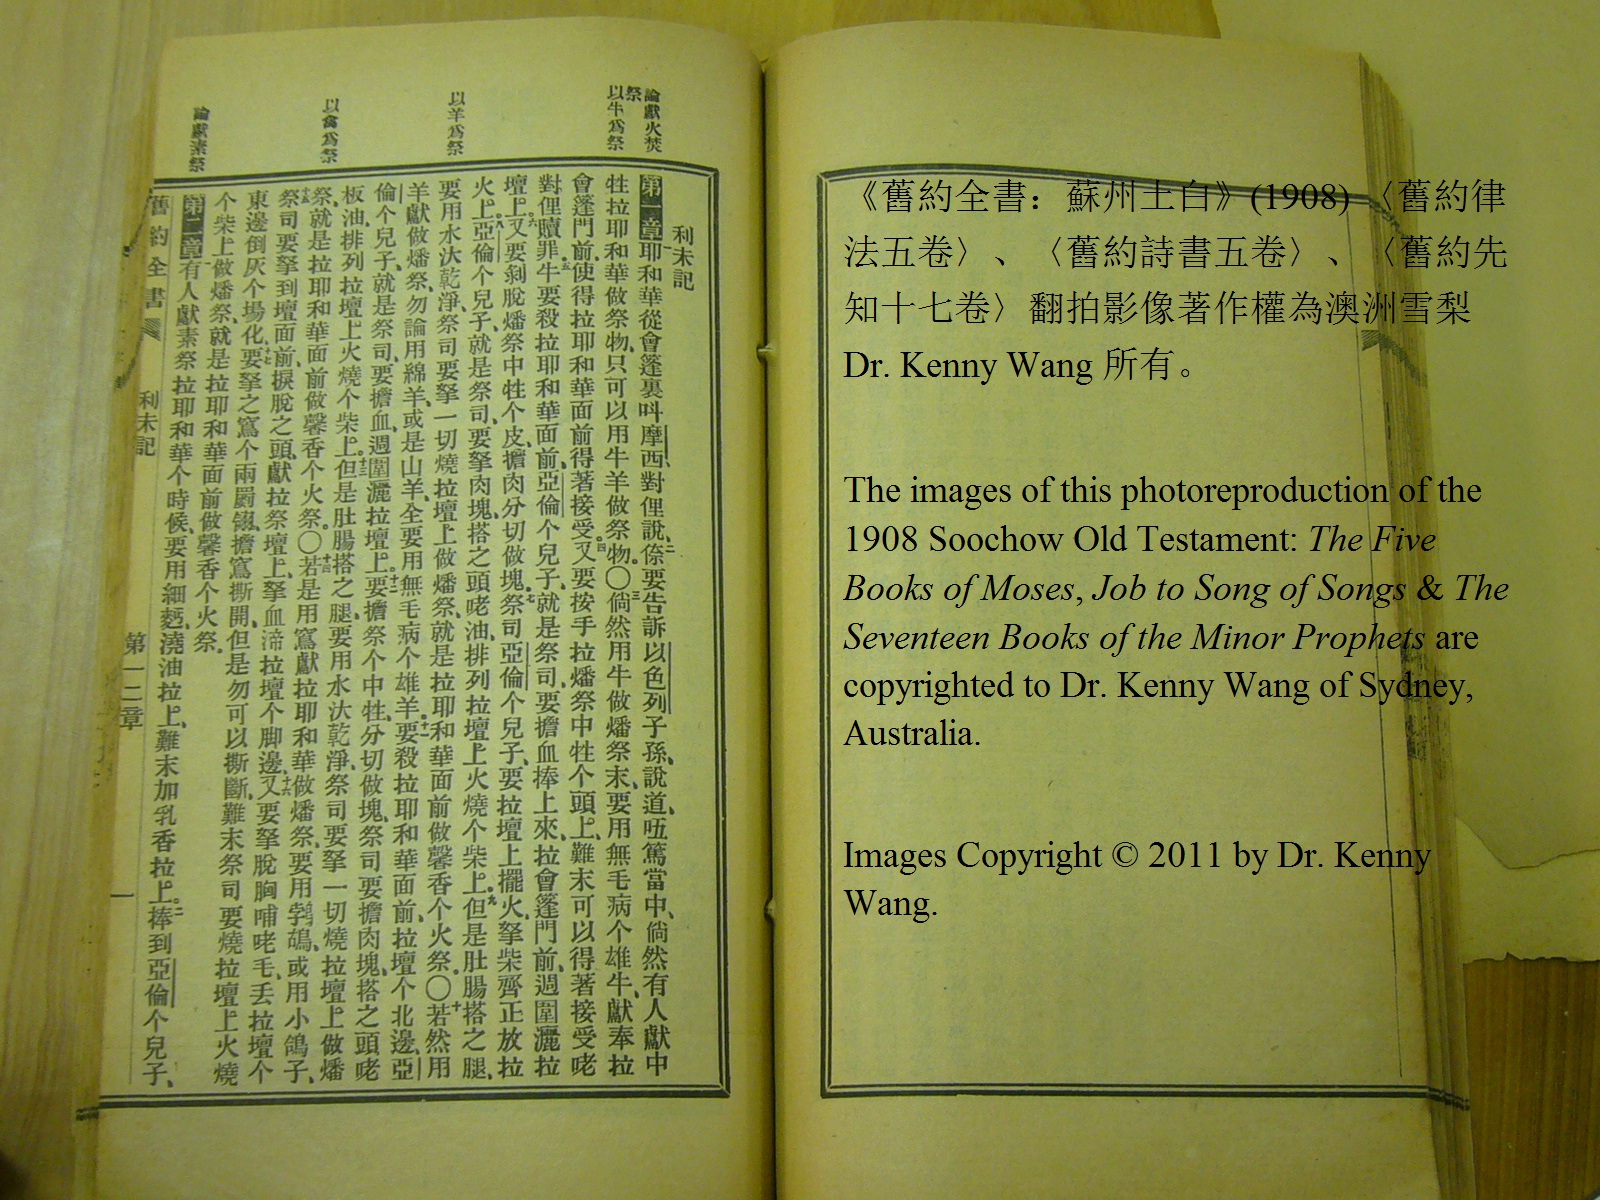 論獻火焚祭
以牛為祭
以羊為祭
以禽為祭
論獻素祭
利未記
第一章耶和華從會篷裏呌摩西對俚說、二倷要告訴以色列子孫、說道、唔篤當中、倘然有人獻中
牲拉耶和華做祭物、只可以用牛羊做祭物。○三倘然用牛做燔祭末、要用無毛病个雄牛、獻奉拉
會篷門前、使得拉耶和華面前得著接受。四又要按手拉燔祭中牲个頭上、難末可以得著接受咾
對俚贖罪。五牛要殺拉耶和華面前、亞倫个兒子、就是祭司、要擔血捧上來、拉會篷門前、週圍灑拉
壇上。六又要剝脫燔祭中牲个皮、擔肉分切做塊。七祭司亞倫个兒子、要拉壇上擺火、拏柴齊正放拉
火上。八亞倫个兒子、就是祭司、要拏肉塊搭之頭咾油、排列拉壇上火燒个柴上。九但是肚腸搭之腿、
要用水汏乾淨、祭司要拏一切燒拉壇上做燔祭、就是拉耶和華面前做馨香个火祭。○十若然用
羊獻做燔祭、勿論用綿羊、或是山羊、全要用無毛病个雄羊。十一要殺拉耶和華面前、拉壇个北邊、亞
倫个兒子、就是祭司、要擔血、週圍灑拉壇上。十二要擔祭个中牲、分切做塊、祭司要擔肉塊、搭之頭咾
板油、排列拉壇上火燒个柴上。十三但是肚腸搭之腿、要用水汏乾淨、祭司要拏一切燒拉壇上做燔
祭、就是拉耶和華面前做馨香个火祭。○十四若是用鳥獻拉耶和華做燔祭、要用鴣、或用小鴿子、
十五祭司要拏到壇面前、捩脫之頭、獻拉祭壇上、拏血渧拉壇个脚邊。十六又要拏脫胸哺咾毛、丟拉壇个
東邊倒灰个場化。十七要拏之鳥个兩、擔鳥撕開、但是勿可以撕斷、難末祭司要燒拉壇上火燒
个柴上、做燔祭、就是拉耶和華面前做馨香个火祭。
第二章有人獻素祭拉耶和華个時候、要用細麪、澆油拉上、難末加乳香拉上。二捧到亞倫个兒子、
舊約全書 利未記 第一二章 一
《舊約全書：蘇州土白》(1908) 〈舊約律
法五卷〉、〈舊約詩書五卷〉、〈舊約先
知十七卷〉翻拍影像著作權為澳洲雪梨
Dr. Kenny Wang 所有。
The images of this photoreproduction of the
1908 Soochow Old Testament: The Five
Books of Moses, Job to Song of Songs & The
Seventeen Books of the Minor Prophets are
copyrighted to Dr. Kenny Wang of Sydney,
Australia.
Images Copyright © 2011 by Dr. Kenny
Wang.